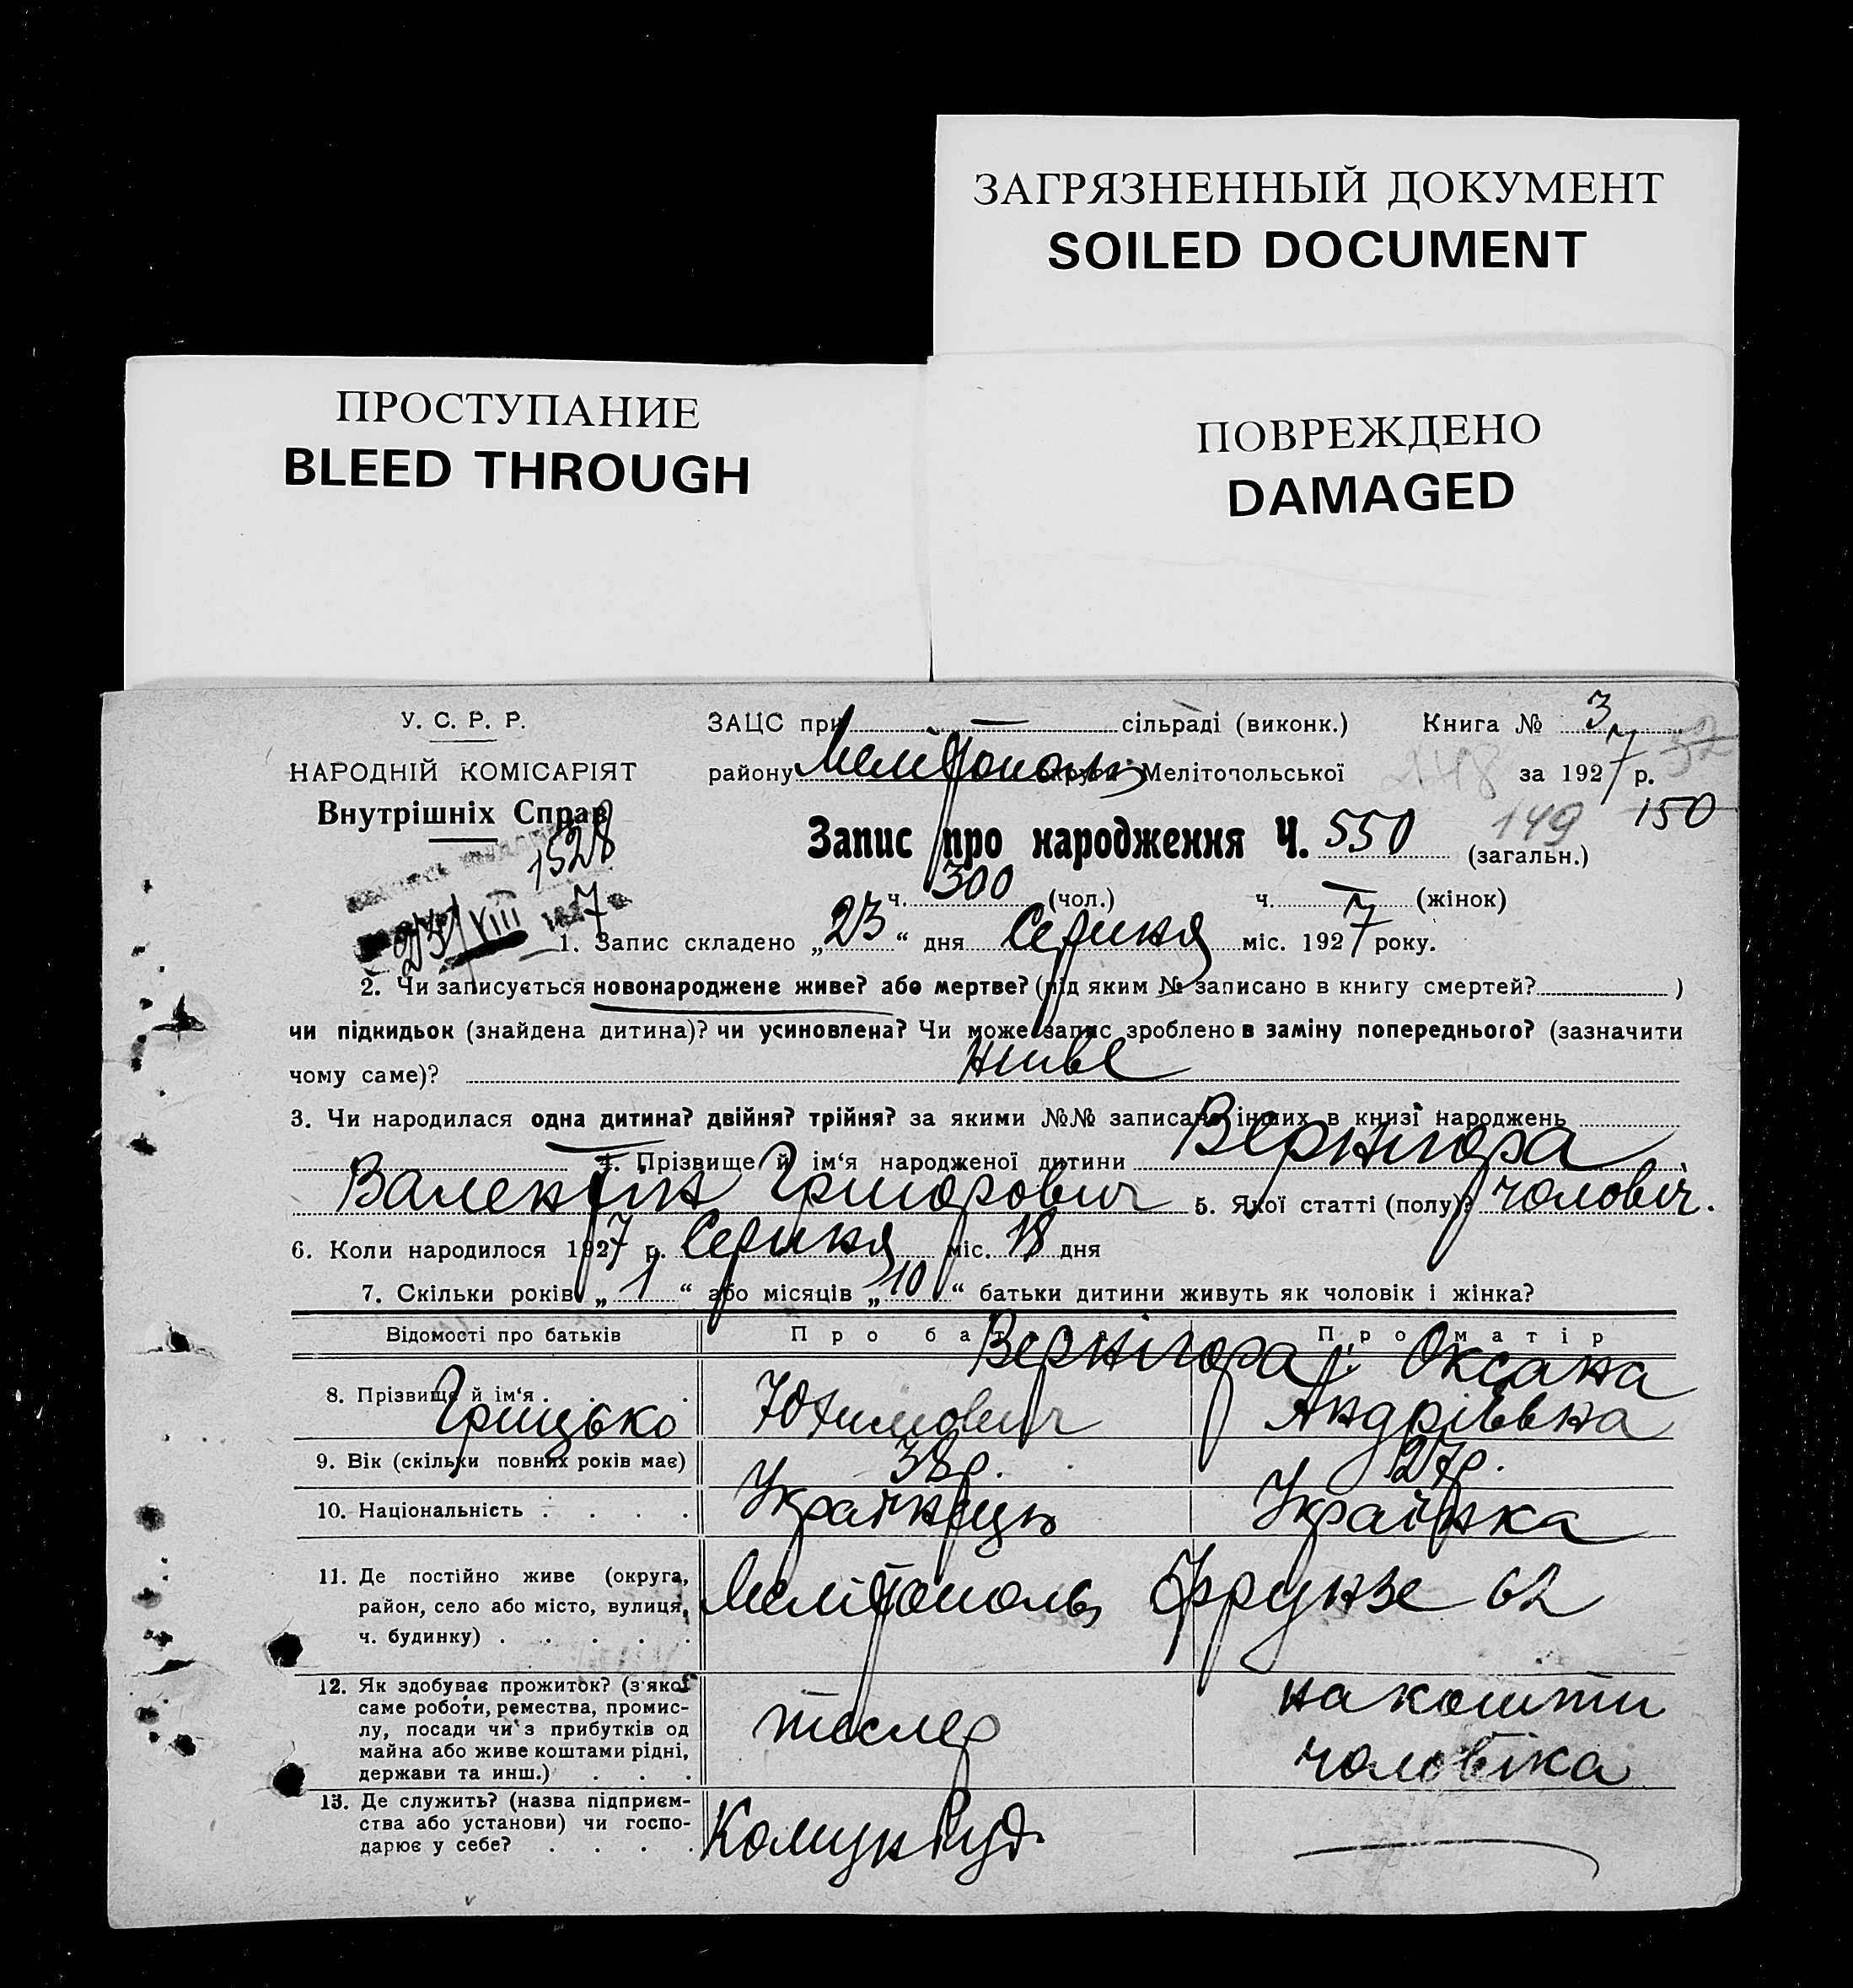 ЗАГРЯЗНЕННЫЙ ДОКУМЕНТ
SOILED DOCUMENT
ПРОСТУПАНИЕ
BLEED THROUGH
ПОВРЕЖДЕНО
DAMAGED
У. С. Р. Р.
НАРОДНІЙ КОМІСАРІЯТ
Внутрішніх Справ
1528
ЗАЦС при — сільраді (виконк.) Книга № 3
району Мелітополь округи Мелітопольської за 1927 р.
149 150
Запис про народження Ч. 550 (загальн.)
ч. 300 (чол.) ч. — (жінок)
1. Запис складено „23“ дня Серпня міс. 1927 року.
2. Чи записується новонароджене живе? або мертве? (під яким № записано в книгу смертей? )
чи підкидьок (знайдена дитина)? чи усиновлена? Чи може запис зроблено в заміну попереднього? (зазначити
чому саме)? живе
3. Чи народилася одна дитина? двійня? трійня? за якими №№ записано інших в книзі народжень
4. Прізвище й ім‘я народженої дитини Вернигора
Валентін Григорович 5. Якої статті (полу)? чоловіч.
6. Коли народилося 1927 р. Серпня міс. 18 дня
7. Скільки років „1“ або місяців „10“ батьки дитини живуть як чоловік і жінка?
Відомості про батьків Про батька Про матір
8. Прізвище й ім‘я Вернігора Грицько Юхимович Оксана Андріївна
9. Вік (скільки повних років має) 38 р. 27 р.
10. Національність Українець Українка
11. Де постійно живе (округа,
район, село або місто, вулиця,
ч. будинку) Мелітополь Фрунзе 62
12. Як здобуває прожиток? (з якої
саме роботи, ремества, промис-
лу, посади чи з прибутків од
майна або живе коштами рідні,
держави та инш.) тесляр на кошти чоловіка
13. Де служить? (назва підприєм-
ства або установи) чи госпо-
дарює у себе?